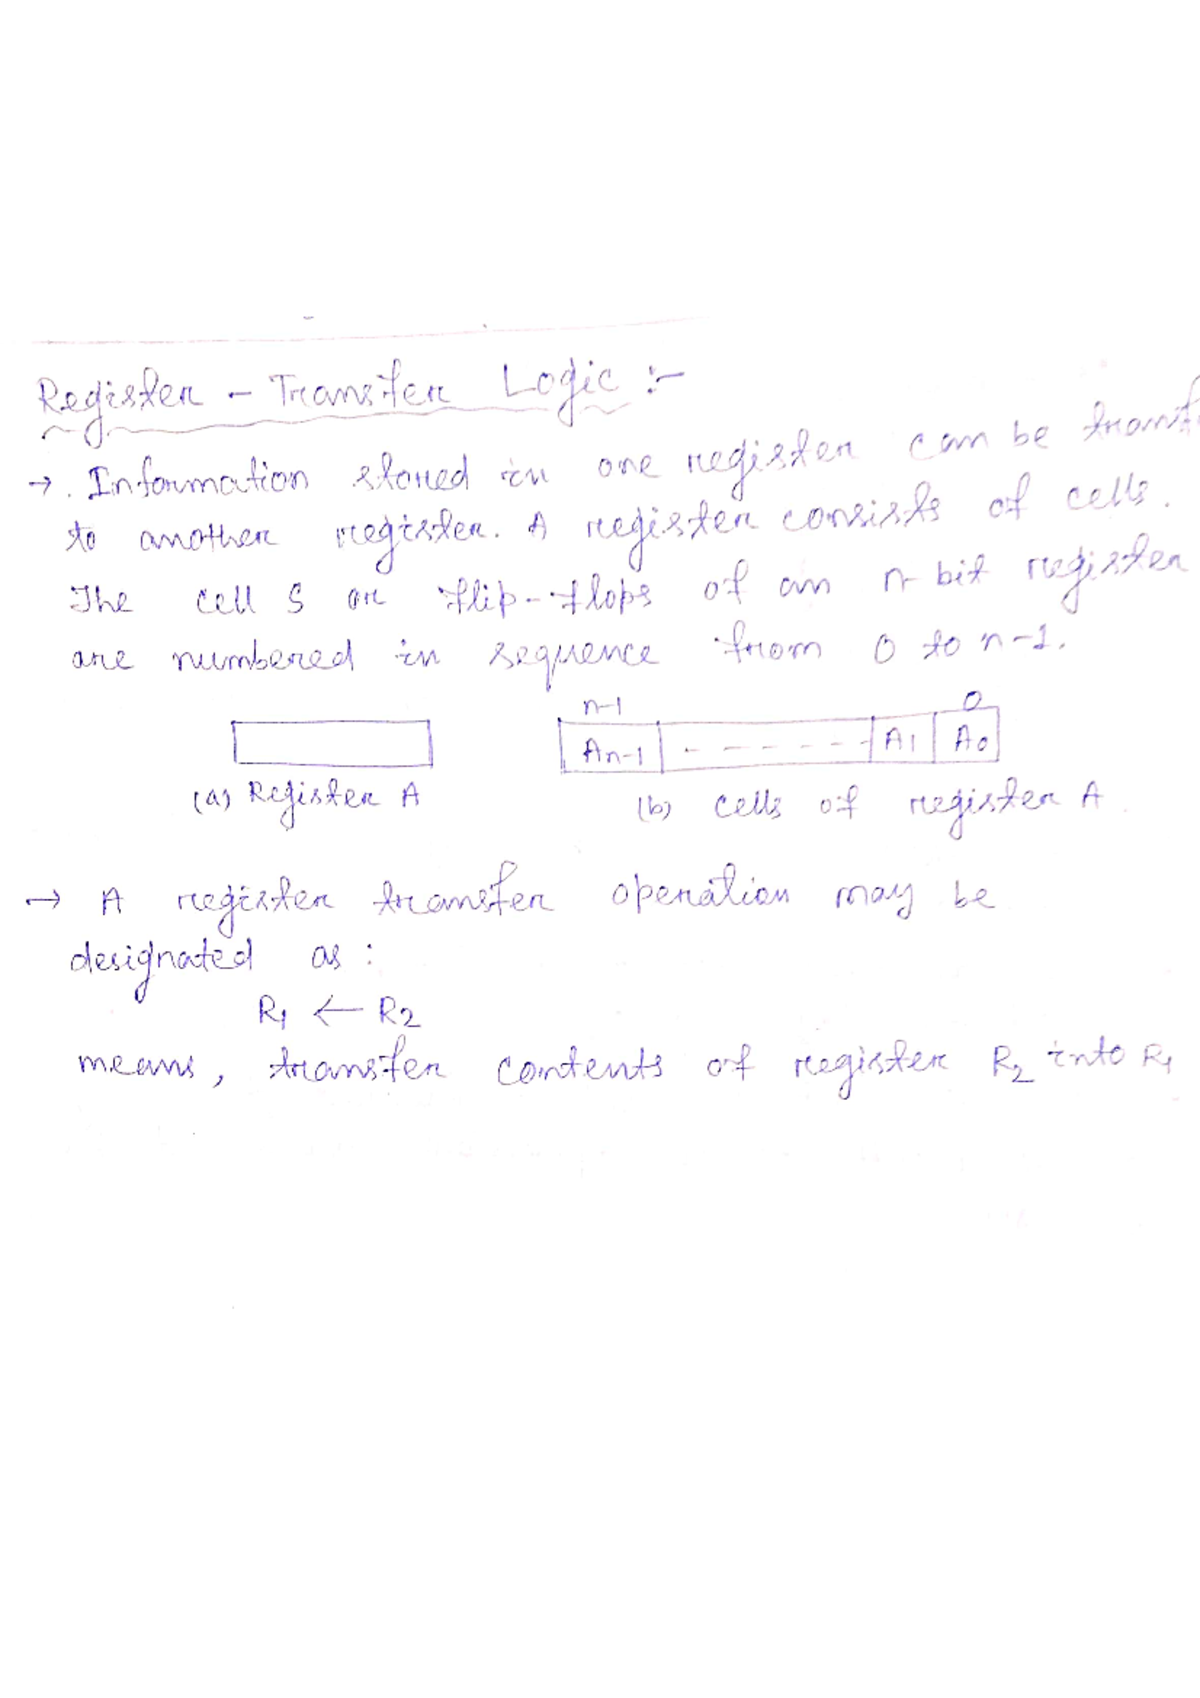 Register - Transfer Logic :-
→. Information stored in one register can be transf
to another register. A register consists of cells.
The cell S or flip-flops of an n-bit register
are numbered in sequence from 0 to n-1.
n-1 0
An-1 - - - - - - - A1 A0
(a) Register A (b) cells of register A
→ A register transfer operation may be
designated as :
R1 ← R2
means, transfer contents of register R2 into R1